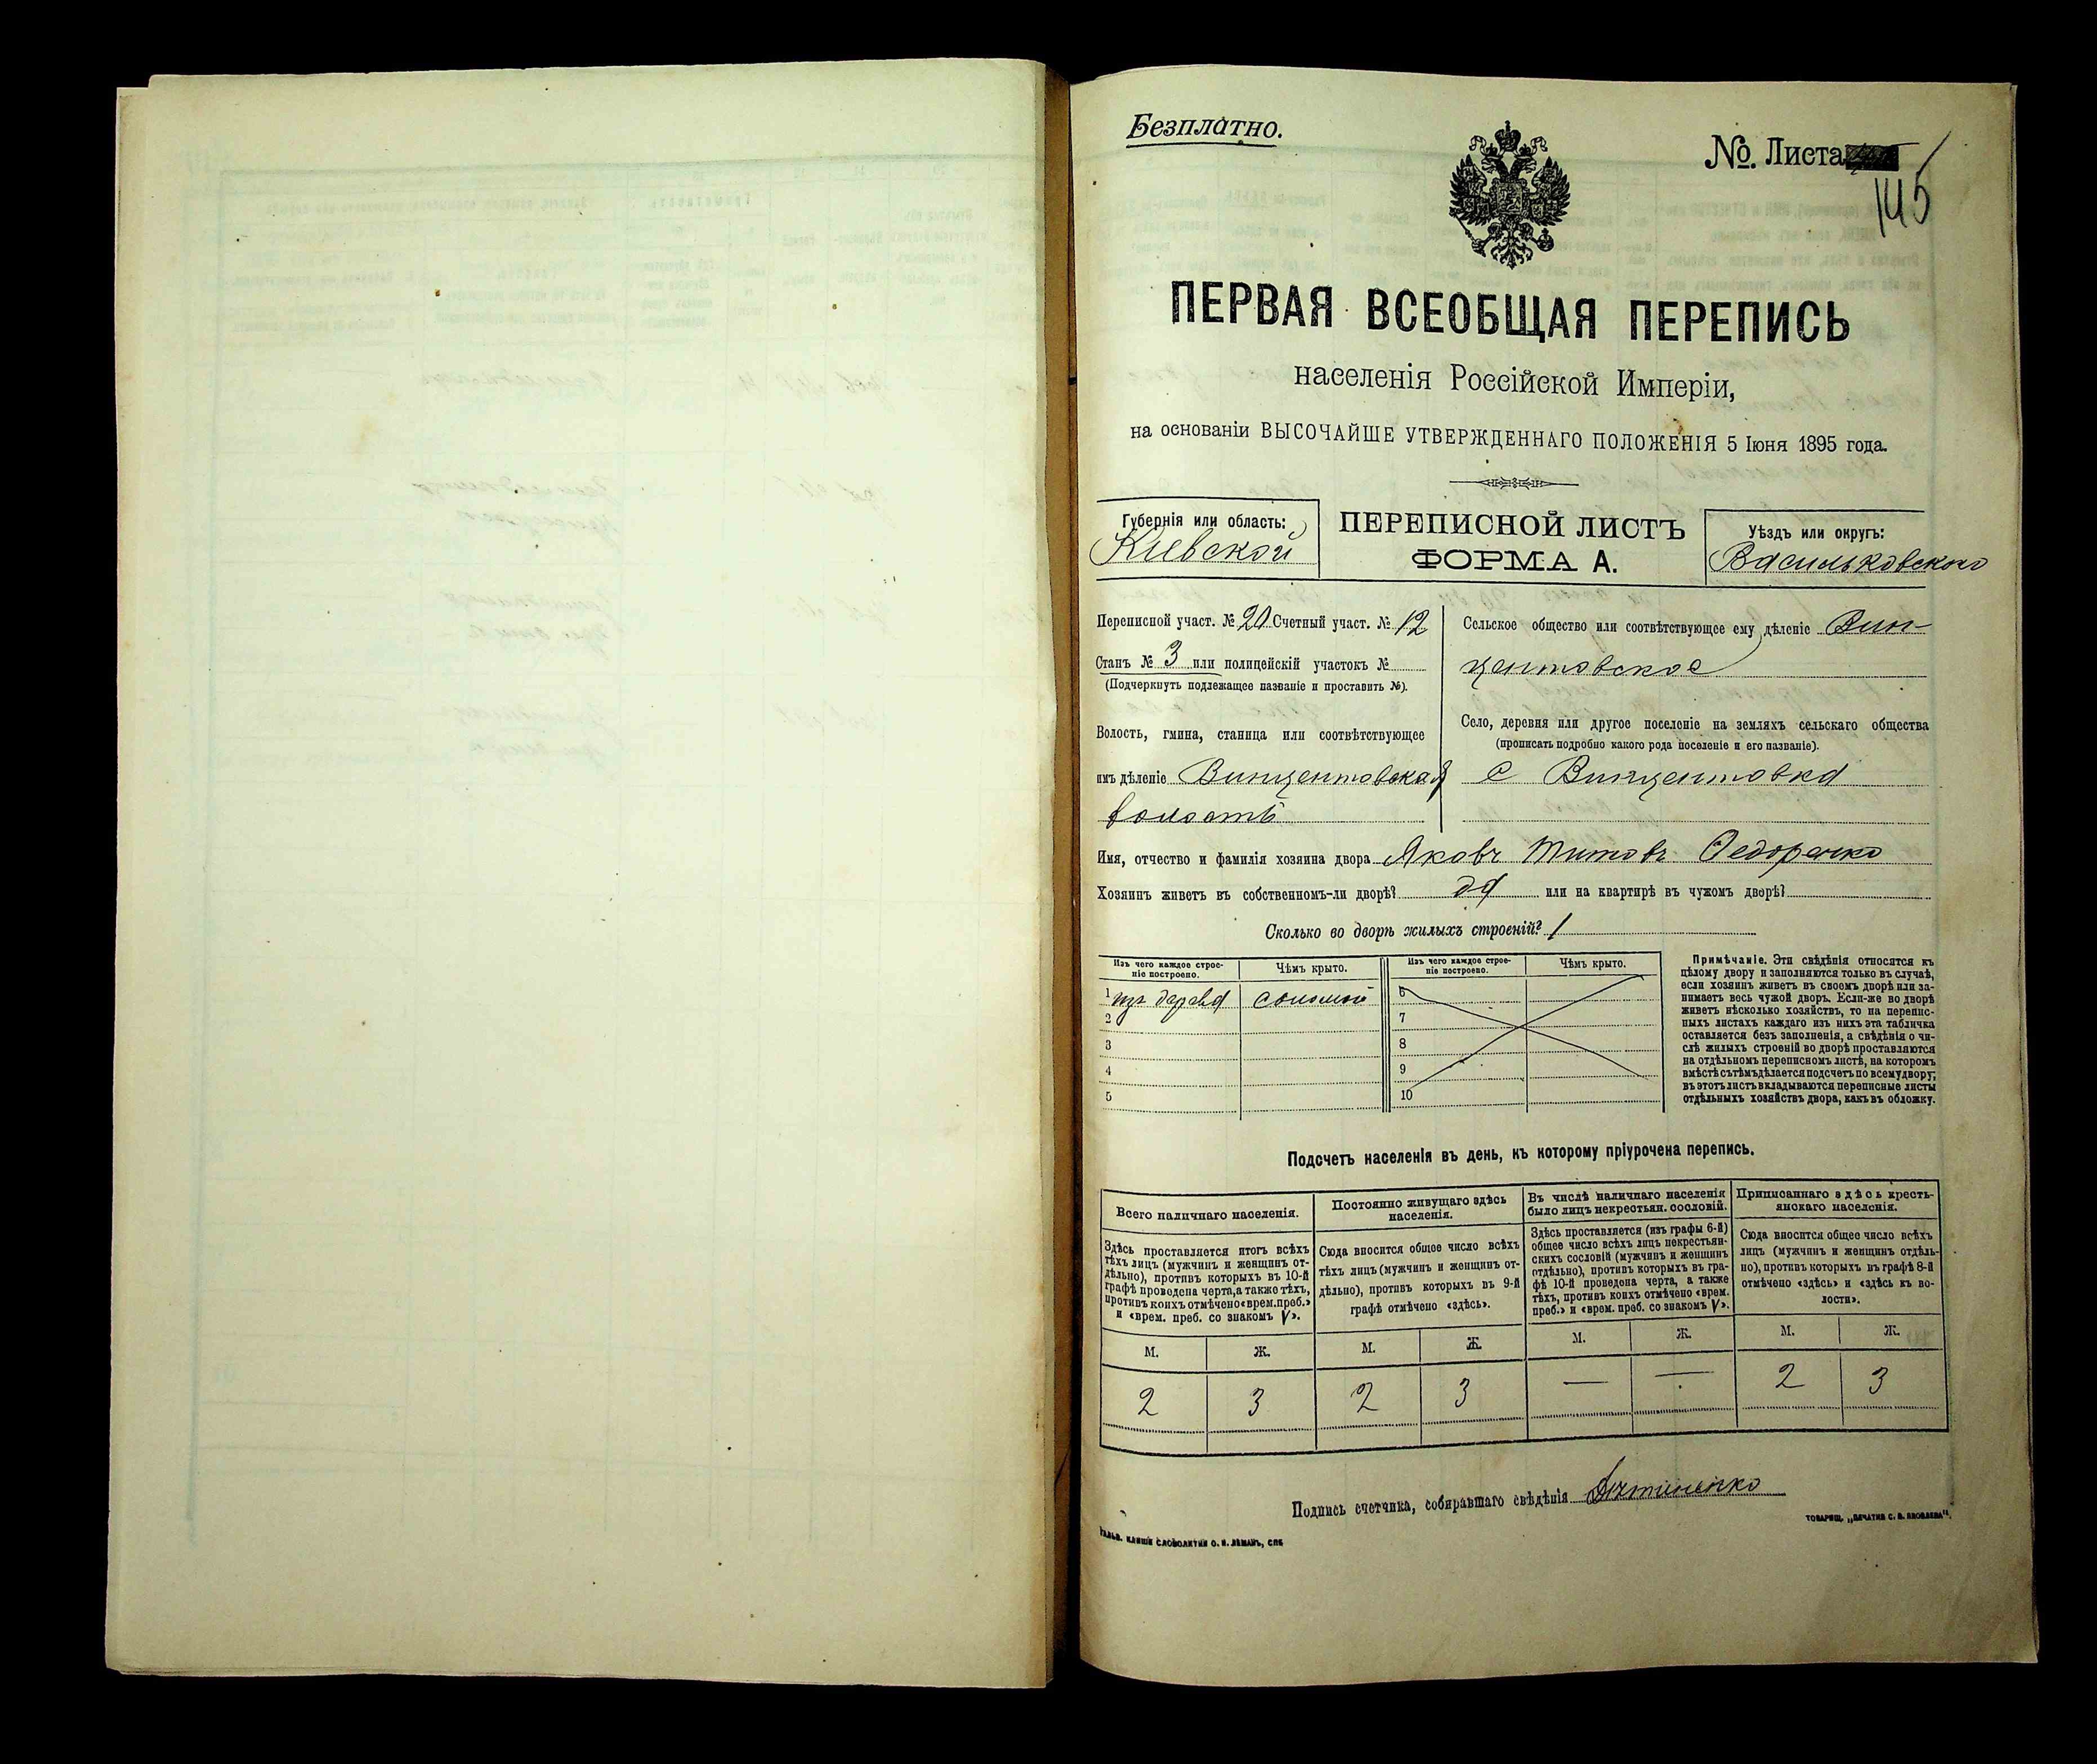 Безплатно.
№ Листа
145
ПЕРВАЯ ВСЕОБЩАЯ ПЕРЕПИСЬ
населенія Россійской Имперіи,
на основаніи ВЫСОЧАЙШЕ УТВЕРЖДЕННАГО ПОЛОЖЕНІЯ 5 Іюня 1895 года.
Губернія или область:
Кіевской
ПЕРЕПИСНОЙ ЛИСТЪ
ФОРМА А.
Уѣздъ или округъ:
Васильковскаго
Переписной участ. № 20 Счетный участ. № 12
Станъ № 3 или полицейскій участокъ №
(Подчеркнуть подлежащее названіе и проставить №).
Волость, гмина, станица или соотвѣтствующее
имъ дѣленіе Винцентовская
волость
Сельское общество или соотвѣтствующее ему дѣленіе Вин-
центовское
Село, деревня или другое поселеніе на земляхъ сельскаго общества
(прописать подробно какого рода поселеніе и его названіе).
с Винцентовка
Имя, отчество и фамилія хозяина двора Яковъ Титовъ Федоренко
Хозяинъ живетъ въ собственномъ-ли дворѣ? да или на квартирѣ въ чужомъ дворѣ?
Сколько во дворѣ жилыхъ строеній? 1
Изъ чего каждое строе-
ніе построено.
Чѣмъ крыто.
Изъ чего каждое строе-
ніе построено.
Чѣмъ крыто.
1 изъ дерева соломой
2
3
4
5
6
7
8
9
10
Примѣчаніе. Эти свѣдѣнія относятся къ
цѣлому двору и заполняются только въ случаѣ,
если хозяинъ живетъ въ своемъ дворѣ или за-
нимаетъ весь чужой дворъ. Если-же во дворѣ
живетъ нѣсколько хозяйствъ, то на перепис-
ныхъ листахъ каждаго изъ нихъ эта табличка
оставляется безъ заполненія, а свѣдѣнія о чи-
слѣ жилыхъ строеній во дворѣ проставляются
на отдѣльномъ переписномъ листѣ, на которомъ
вмѣстѣ съ тѣмъ дѣлается подсчетъ по всему двору;
въ этотъ листъ вкладываются переписные листы
отдѣльныхъ хозяйствъ двора, какъ въ обложку.
Подсчетъ населенія въ день, къ которому пріурочена перепись.
Всего наличнаго населенія.
Здѣсь проставляется итогъ всѣхъ
тѣхъ лицъ (мужчинъ и женщинъ от-
дѣльно), противъ которыхъ въ 10-й
графѣ проведена черта, а также тѣхъ,
противъ коихъ отмѣчено «врем. преб.»
и «врем. преб. со знакомъ V».
Постоянно живущаго здѣсь
населенія.
Сюда вносится общее число всѣхъ
тѣхъ лицъ (мужчинъ и женщинъ от-
дѣльно), противъ которыхъ въ 9-й
графѣ отмѣчено «здѣсь».
Въ числѣ наличнаго населенія
было лицъ некрестьян. сословій.
Здѣсь проставляется (изъ графы 6-й)
общее число всѣхъ лицъ некрестьян-
скихъ сословій (мужчинъ и женщинъ
отдѣльно), противъ которыхъ въ гра-
фѣ 10-й проведена черта, а также
тѣхъ, противъ коихъ отмѣчено «врем.
преб.» и «врем. преб. со знакомъ V».
Приписаннаго здѣсь кресть-
янскаго населенія.
Сюда вносится общее число всѣхъ
лицъ (мужчинъ и женщинъ отдѣль-
но), противъ которыхъ въ графѣ 8-й
отмѣчено «здѣсь» и «здѣсь къ во-
лости».
М. Ж. М. Ж. М. Ж. М. Ж.
2 3 2 3 — — 2 3
Подпись счетчика, собиравшаго свѣдѣнія
КЛИШЕ СЛОВОЛИТНИ О. И. ЛЕМАНЪ, СПБ
ТОВАРИЩ. „ПЕЧАТНЯ С. П. ЯКОВЛЕВА".